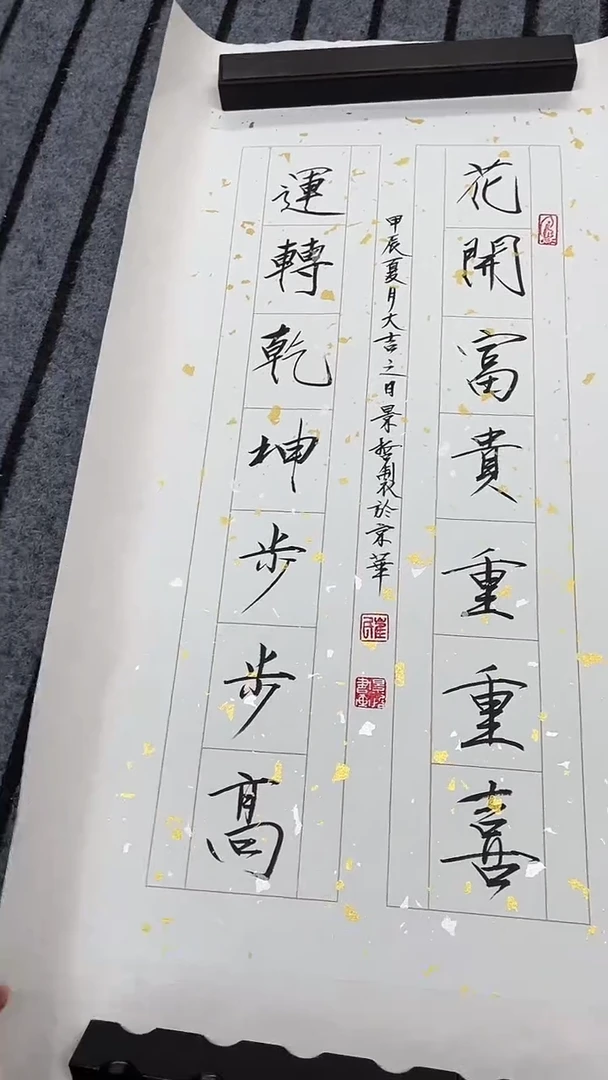 花開富貴重重喜
甲辰夏月大吉之日景哲製於京華
運轉乾坤步步高